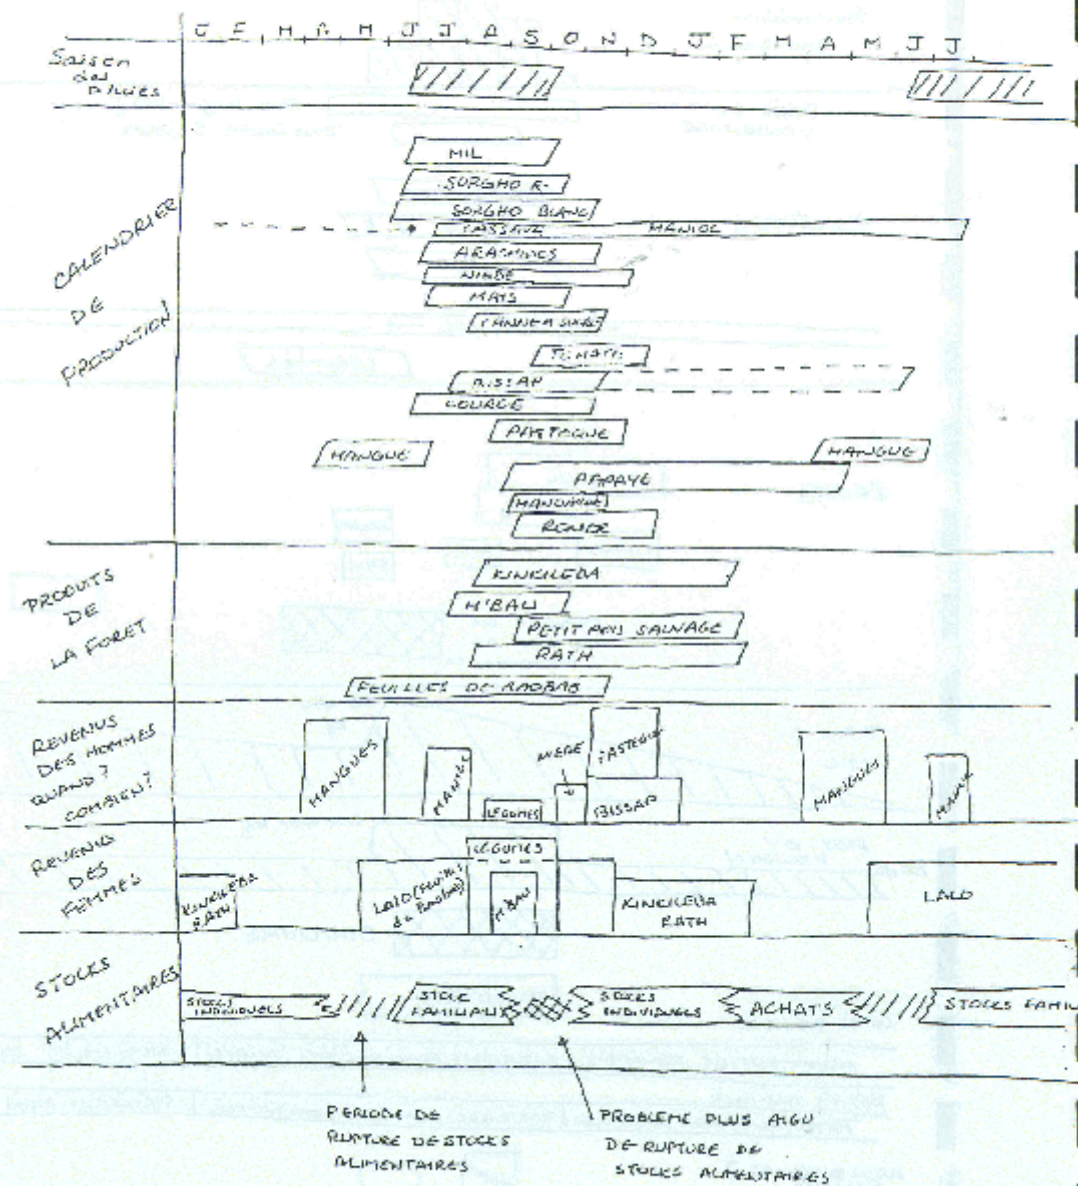 J F M A M J J A S O N D J F M A M J J
Saison
des
Pluies
CALENDRIER
DE
PRODUCTION
MIL
SORGHO R.
SORGHO BLANC
MANIOC
ARACHIDES
NIEBE
MAIS
TOMATE
BISSAP
COURGE
PASTEQUE
MANGUE
MANGUE
PAPAYE
MANDARINE
RONIER
PRODUITS
DE
LA FORET
KINKILEBA
M'BAU
PETIT POIS SAUVAGE
RATH
FEUILLES DE BAOBAB
REVENUS
DES HOMMES
QUAND?
COMBIEN?
MANGUES
LEGUMES
NIEBE
PASTEQUE
BISSAP
MANGUES
REVENUS
DES
FEMMES
KINKILEBA
RATH
LALO (FEUILLES
du Baobab)
LEGUMES
M'BAU
KINKILEBA
RATH
LALO
STOCKS
ALIMENTAIRES
STOCKS
INDIVIDUELS
STOCK
FAMILIAUX
STOCKS
INDIVIDUELS
ACHATS
STOCKS FAMIL
PERIODE DE
RUPTURE DE STOCKS
ALIMENTAIRES
PROBLEME PLUS AIGU
DE RUPTURE DE
STOCKS ALIMENTAIRES